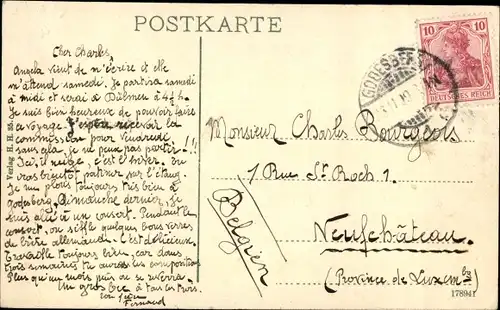 POSTKARTE
Cher Charles,
Angela vient de m'écrire et elle
m'attend samedi. Je partirai samedi
à midi et serai à Dülmen à 4½ h.
Je suis bien heureux de pouvoir faire
ce voyage. J'espère recevoir la
commission pour vendredi
sans cela, je ne peux pas partir!!!
Ici, il neige, c'est l'hiver. On
va bientôt patiner sur l'étang.
Je me plais toujours très bien à
Godesberg. Dimanche dernier, je
suis allé à un concert. Pendant le
concert, on siffle quelques bons verres
de bière allemande. C'est délicieux.
Travaille toujours bien, car dans
trois semaines tu auras les compositions
Plus qu'un mois puis on se reverra.
Un gros bec à tous les trois.
ton frère
Fernand
Verlag H. H. i. B.
GODESBERG
10 10
DEUTSCHES REICH
Monsieur Charles Bourguignon
1 Rue St Roch 1.
Neufchâteau.
(Province de Luxembg
Belgien
178941